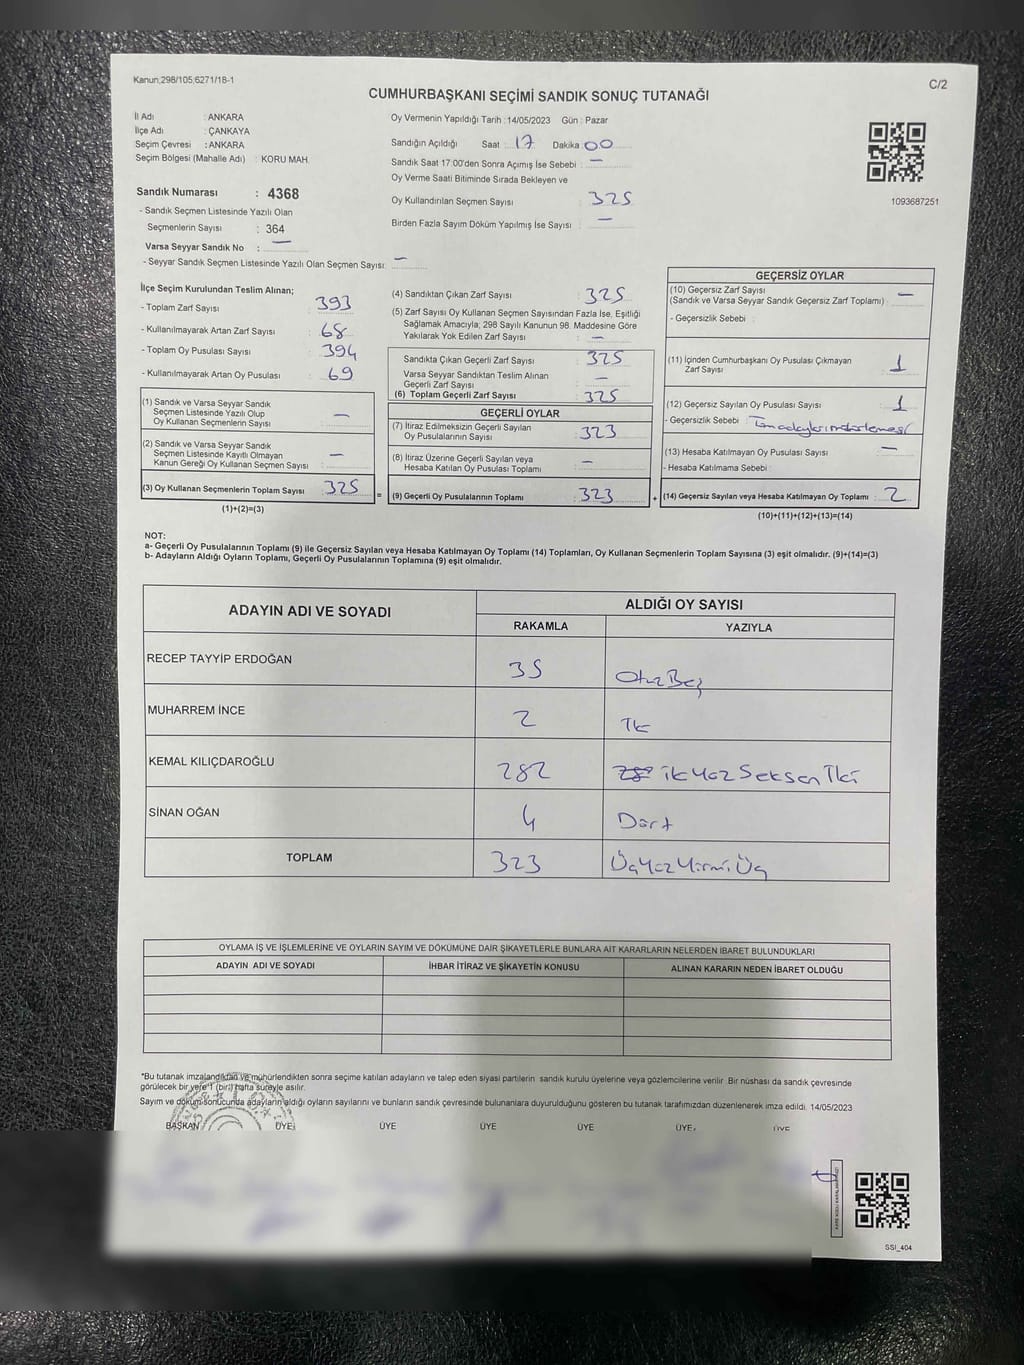 Kanun;298/105,6271/18-1
C/2
CUMHURBAŞKANI SEÇİMİ SANDIK SONUÇ TUTANAĞI
İl Adı : ANKARA
İlçe Adı : ÇANKAYA
Seçim Çevresi : ANKARA
Seçim Bölgesi (Mahalle Adı) : KORU MAH.
Sandık Numarası : 4368
- Sandık Seçmen Listesinde Yazılı Olan
Seçmenlerin Sayısı : 364
Varsa Seyyar Sandık No : —
- Seyyar Sandık Seçmen Listesinde Yazılı Olan Seçmen Sayısı: —
Oy Vermenin Yapıldığı Tarih :14/05/2023 Gün : Pazar
Sandığın Açıldığı Saat : 17 Dakika 00
Sandık Saat 17:00'den Sonra Açımış İse Sebebi : —
Oy Verme Saati Bitiminde Sırada Bekleyen ve
Oy Kullandırılan Seçmen Sayısı : 325
Birden Fazla Sayım Döküm Yapılmış İse Sayısı : —
1093687251
İlçe Seçim Kurulundan Teslim Alınan;
- Toplam Zarf Sayısı : 393
- Kullanılmayarak Artan Zarf Sayısı : 68
- Toplam Oy Pusulası Sayısı : 394
- Kullanılmayarak Artan Oy Pusulası : 69
(1) Sandık ve Varsa Seyyar Sandık
Seçmen Listesinde Yazılı Olup
Oy Kullanan Seçmenlerin Sayısı : —
(2) Sandık ve Varsa Seyyar Sandık
Seçmen Listesinde Kayıtlı Olmayan
Kanun Gereği Oy Kullanan Seçmen Sayısı : —
(3) Oy Kullanan Seçmenlerin Toplam Sayısı : 325 =
(1)+(2)=(3)
(4) Sandıktan Çıkan Zarf Sayısı : 325
(5) Zarf Sayısı Oy Kullanan Seçmen Sayısından Fazla İse, Eşitliği
Sağlamak Amacıyla; 298 Sayılı Kanunun 98. Maddesine Göre
Yakılarak Yok Edilen Zarf Sayısı : —
Sandıkta Çıkan Geçerli Zarf Sayısı : 325
Varsa Seyyar Sandıktan Teslim Alınan
Geçerli Zarf Sayısı : —
(6) Toplam Geçerli Zarf Sayısı : 325
GEÇERLİ OYLAR
(7) İtiraz Edilmeksizin Geçerli Sayılan
Oy Pusulalarının Sayısı : 323
(8) İtiraz Üzerine Geçerli Sayılan veya
Hesaba Katılan Oy Pusulası Toplamı : —
(9) Geçerli Oy Pusulalarının Toplamı : 323 +
GEÇERSİZ OYLAR
(10) Geçersiz Zarf Sayısı
(Sandık ve Varsa Seyyar Sandık Geçersiz Zarf Toplamı) : —
- Geçersizlik Sebebi :
(11) İçinden Cumhurbaşkanı Oy Pusulası Çıkmayan
Zarf Sayısı : 1
(12) Geçersiz Sayılan Oy Pusulası Sayısı : 1
- Geçersizlik Sebebi :
(13) Hesaba Katılmayan Oy Pusulası Sayısı : —
- Hesaba Katılmama Sebebi :
(14) Geçersiz Sayılan veya Hesaba Katılmayan Oy Toplamı : 2
(10)+(11)+(12)+(13)=(14)
NOT:
a- Geçerli Oy Pusulalarının Toplamı (9) ile Geçersiz Sayılan veya Hesaba Katılmayan Oy Toplamı (14) Toplamları, Oy Kullanan Seçmenlerin Toplam Sayısına (3) eşit olmalıdır. (9)+(14)=(3)
b- Adayların Aldığı Oyların Toplamı, Geçerli Oy Pusulalarının Toplamına (9) eşit olmalıdır.
ADAYIN ADI VE SOYADI
ALDIĞI OY SAYISI
RAKAMLA YAZIYLA
RECEP TAYYİP ERDOĞAN 35 Otuz Beş
MUHARREM İNCE 2 İki
KEMAL KILIÇDAROĞLU 282 ik Yüz Seksen İki
SİNAN OĞAN 4 Dört
TOPLAM 323 Üç Yüz Yirmi Üç
OYLAMA İŞ VE İŞLEMLERİNE VE OYLARIN SAYIM VE DÖKÜMÜNE DAİR ŞİKAYETLERLE BUNLARA AİT KARARLARIN NELERDEN İBARET BULUNDUKLARI
ADAYIN ADI VE SOYADI İHBAR İTİRAZ VE ŞİKAYETİN KONUSU ALINAN KARARIN NEDEN İBARET OLDUĞU
*Bu tutanak imzalandıktan ve mühürlendikten sonra seçime katılan adayların ve talep eden siyasi partilerin sandık kurulu üyelerine veya gözlemcilerine verilir. Bir nüshası da sandık çevresinde
görülecek bir yere 1 (bir) hafta süreyle asılır.
Sayım ve döküm sonucunda adayların aldığı oyların sayılarını ve bunların sandık çevresinde bulunanlara duyurulduğunu gösteren bu tutanak tarafımızdan düzenlenerek imza edildi. 14/05/2023
BAŞKAN ÜYE ÜYE ÜYE ÜYE ÜYE ÜYE
SSI_404